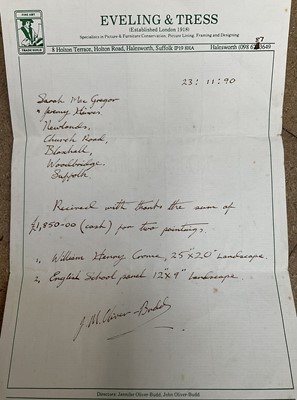 FINE ART
TRADE GUILD
EVELING & TRESS
(Established London 1919)
Specialists in Picture & Furniture Conservation. Picture Lining, Framing and Designing
8 Holton Terrace, Holton Road, Halesworth, Suffolk IP19 8HA
Halesworth (098 67) 3649
87
23: 11: 90
Sarah Mac Gregor
Jeremy
Newlands,
Church Road,
Blaxhall,
Woodbridge,
Suffolk.
Received with thanks the sum of
£1,850-00 (cash) for two paintings.
1, William Henry Crome, 25"x20" Landscape.
2, English School panel 12"x9" Landscape.
J. M. Oliver-Budd
Directors Jennifer Oliver-Budd, John Oliver-Budd